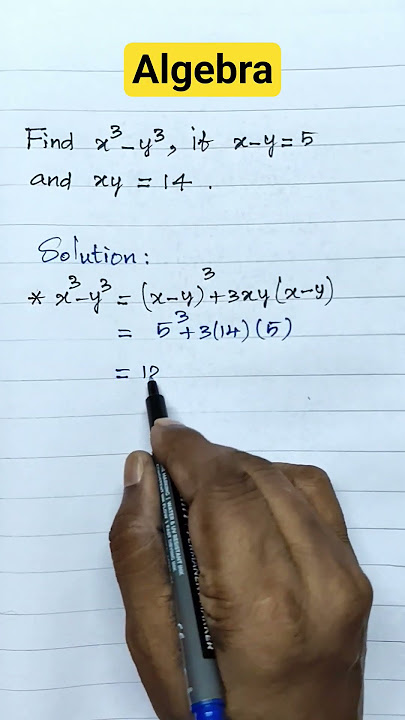 Algebra
Find x³-y³, if x-y=5
and xy = 14 .
Solution:
* x³-y³ = (x-y)³+3xy(x-y)
= 5³+3(14)(5)
= 12